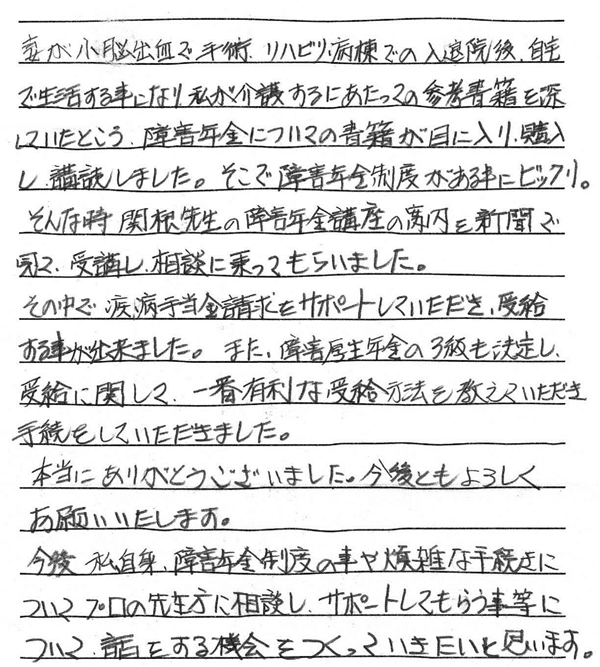 妻が小脳出血で手術、リハビリ病棟での入退院後、自宅
で生活する事になり、私が介護するにあたっての参考書籍を深
していたところ、障害年金についての書籍が目に入り、購入
し、講読しました。そこで障害年金制度がある事にビックリ。
そんな時関根先生の障害年金講座の案内を新聞で
見て、受講し、相談に乗ってもらいました。
その中で、疾病手当金請求をサポートしていただき、受給
する事が出来ました。また、障害厚生年金の3級も決定し、
受給に関して、一番有利な受給方法を教えていただき
手続をしていただきました。
本当にありがとうございました。今後ともよろしく
お願いいたします。
今後、私自身、障害年金制度の事や煩雑な手続きに
ついてプロの先生方に相談し、サポートしてもらう事等に
ついて、話をする機会をつくっていきたいと思います。